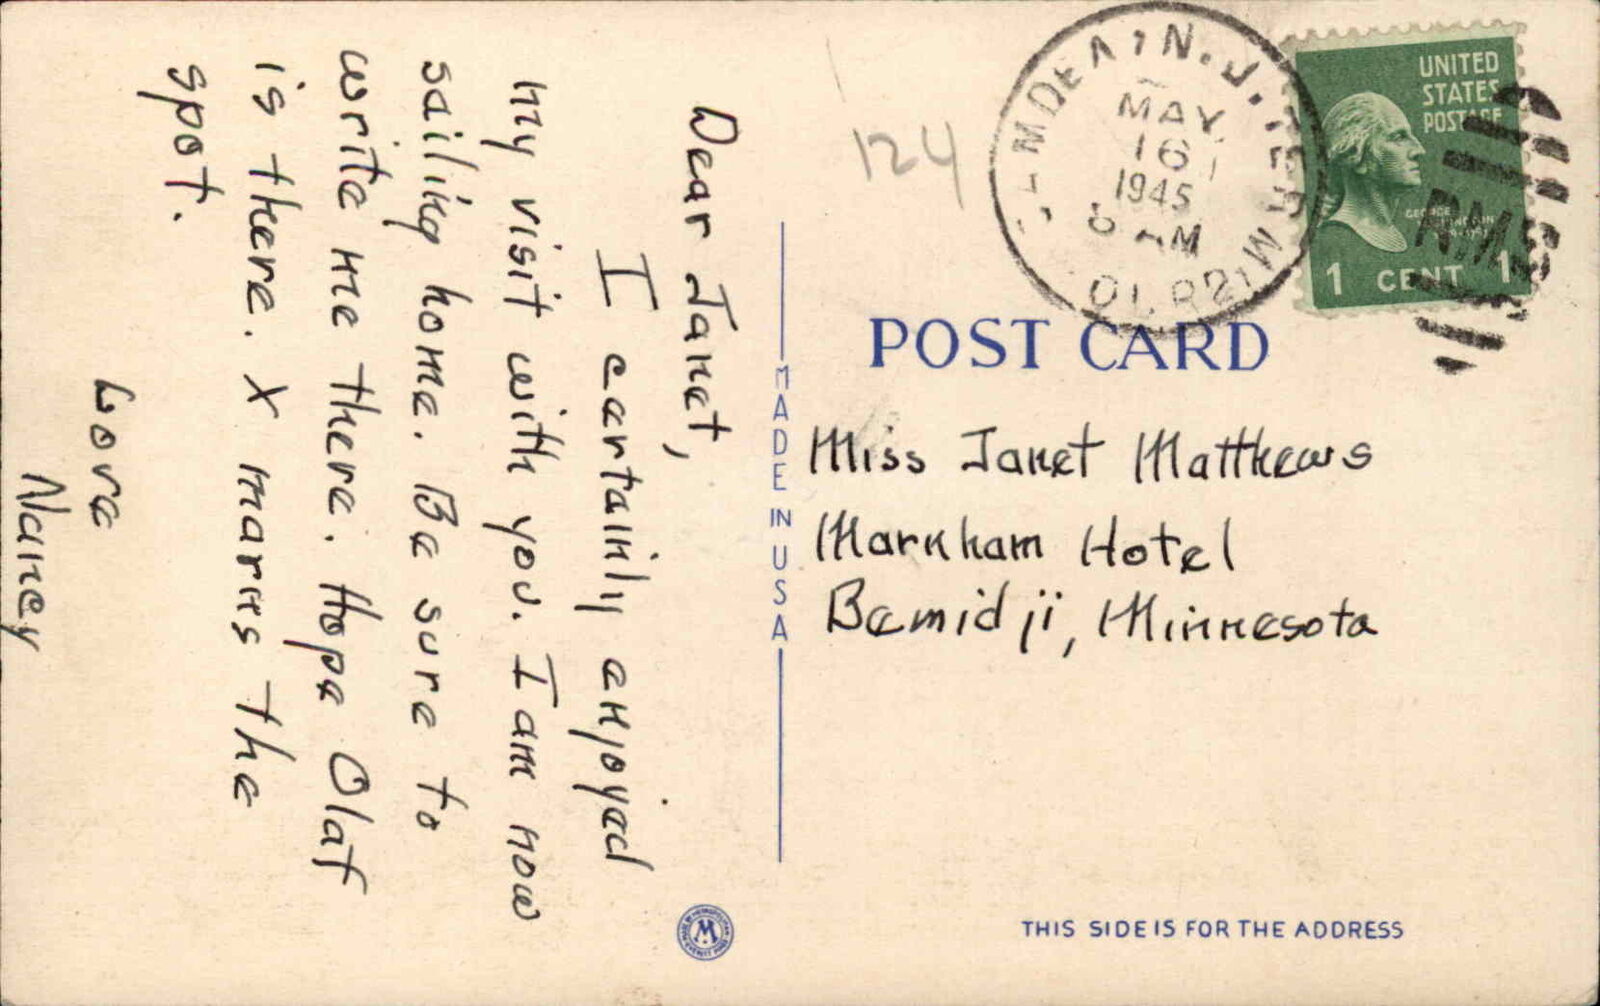 Dear Janet,
I certainly enjoyed
my visit with you. I am now
sailing home. Be sure to
write me there. Hope Olaf
is there. X marks the
spot.
Love
Nancy
124
MAY
16
1945
AM
N.J.
UNITED
STATES
POSTAGE
1 CENT 1
RMS
POST CARD
MADE IN USA
Miss Janet Matthews
Markham Hotel
Bemidji, Minnesota
M
THIS SIDE IS FOR THE ADDRESS